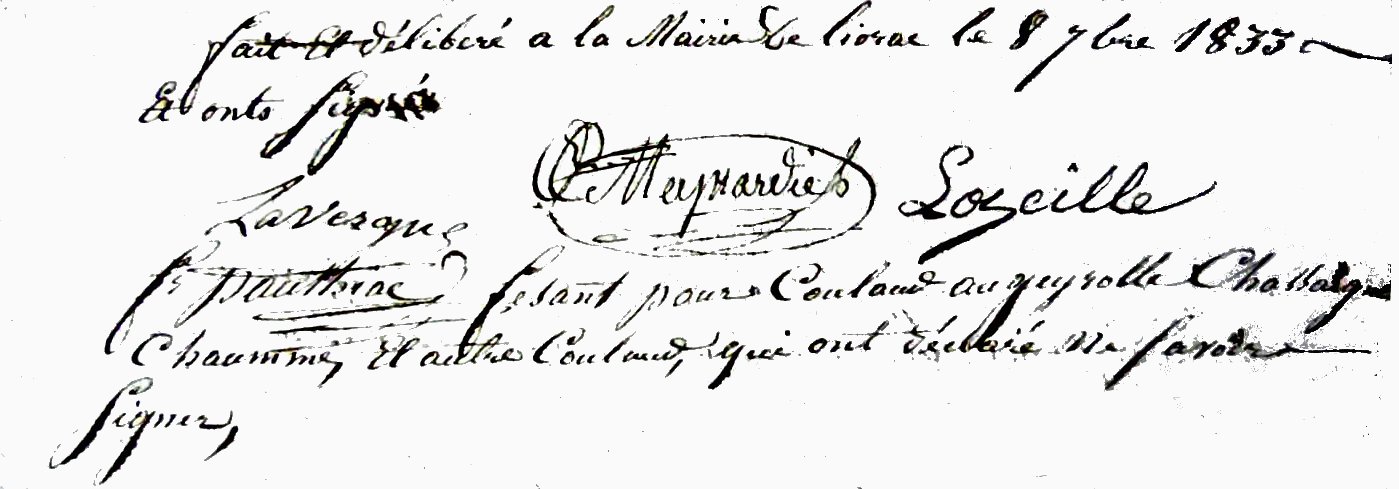 fait Et délibéré a la Mairie de liorac le 8 7bre 1833
Et onts signé
Meynardie Lozeille
Lavergne
fr pauthrac fesant pour Couland aupeyrolle Chassaigne
Chaumme, Et autre Couland, qui ont déclaré ne savoir
signer,